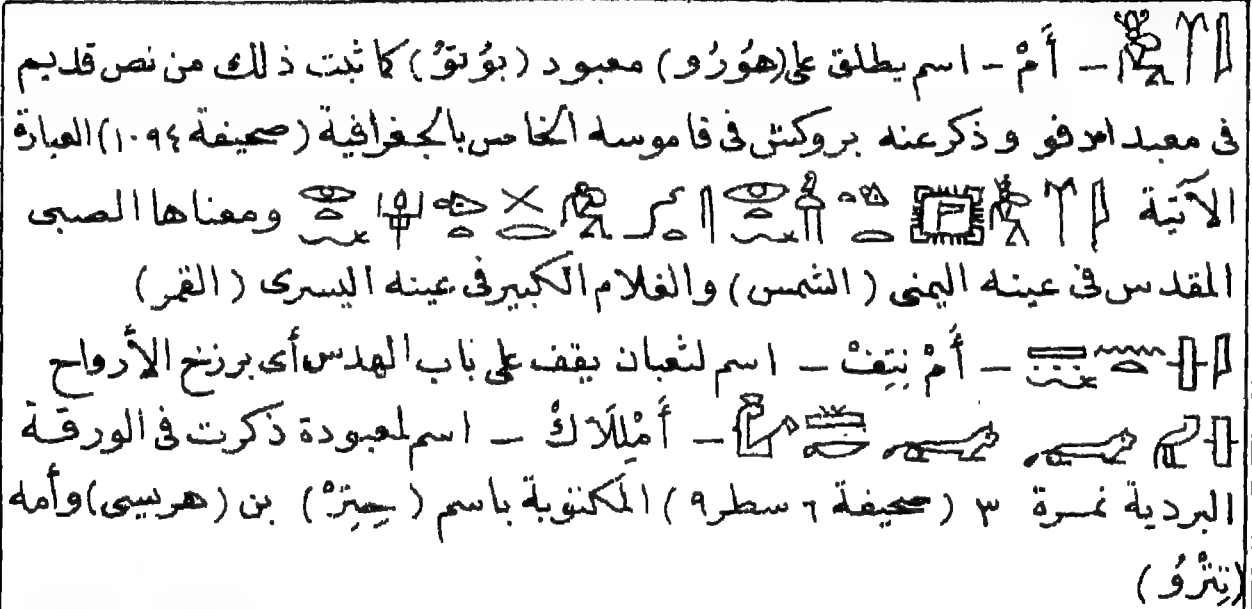 – أَمْ – اسم يطلق على (هوُرُو) معبود (بوُتوْ) كما ثبت ذلك من نص قديم
فى معبد ادفو وذكر عنه بروكش فى قاموسه الخامس بالجغرافية (صحيفة ١٠٩٤) العبارة
الآتية ومعناها الصبى
المقدس فى عينه اليمنى (الشمس) والغلام الكبير فى عينه اليسرى (القمر)
– أَمْ نِتِفْ – اسم لثعبان يقف على باب الهدس أى برزخ الأرواح
– أَمْلِلَاكْ – اسم لمعبودة ذكرت فى الورقة
البردية نمرة ٣ (صحيفة ٦ سطر ٩) المكتوبة باسم (حِتِرْ) بن (هرسيسى) وأمه
(تِتْرُو)